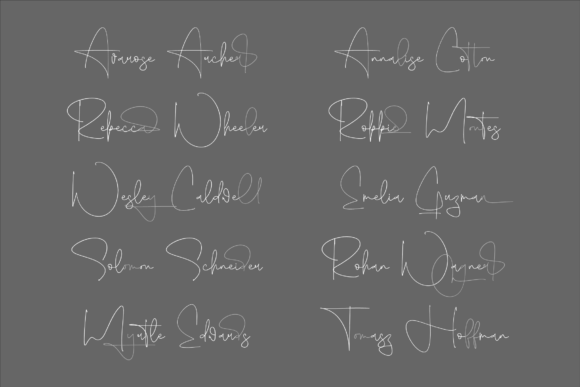 Avarose Archers
Annalise Cotton
Rebecca Wheeler
Robbie Montes
Wesley Caldwell
Emelia Guzman
Solomon Schneider
Rohan Wayners
Myrtle Edwards
Tomasz Hoffman